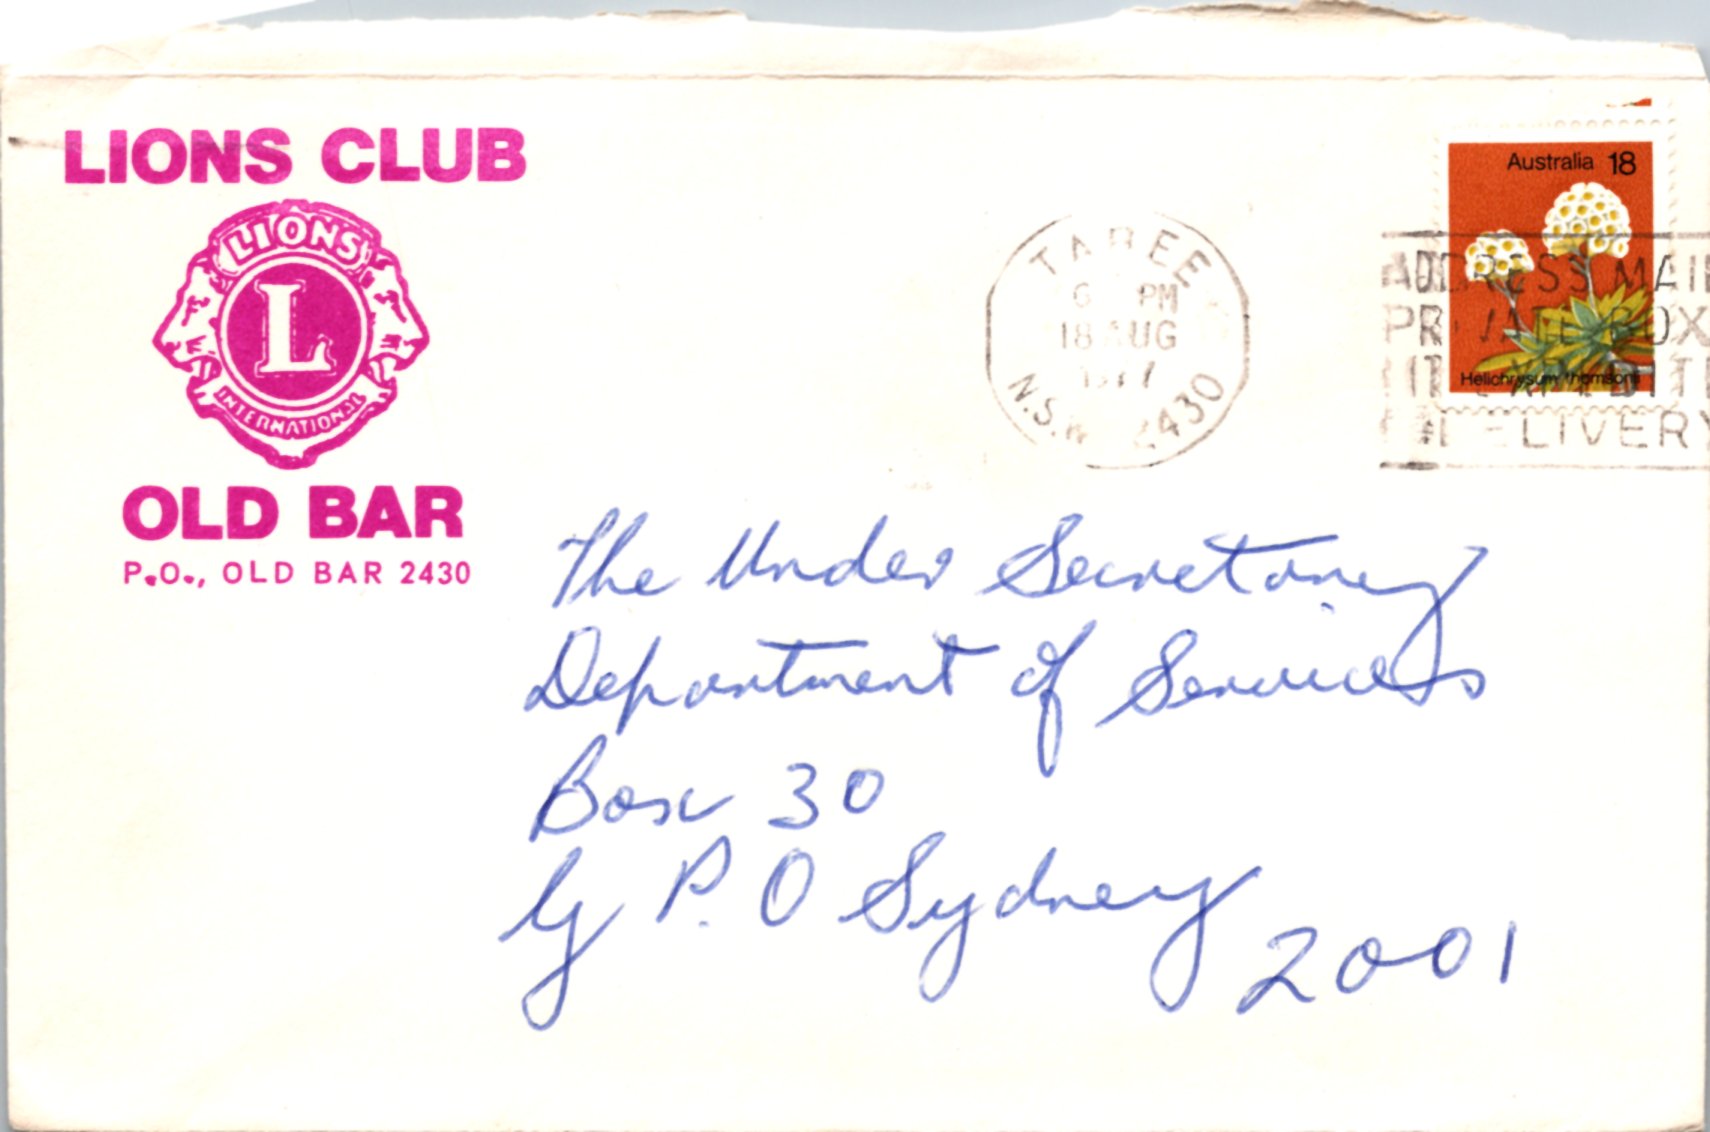 LIONS CLUB
LIONS
L
INTERNATIONAL
OLD BAR
P.O., OLD BAR 2430
Australia 18
Helichrysum thomsonii
TAREE
6 PM
18 AUG
1977
N.S.W. 2430
ADDRESS MAIL
PRIVATE BOX
IT EXPEDITE
DELIVERY
The Under Secretary
Department of Services
Box 30
G P. O Sydney
2001